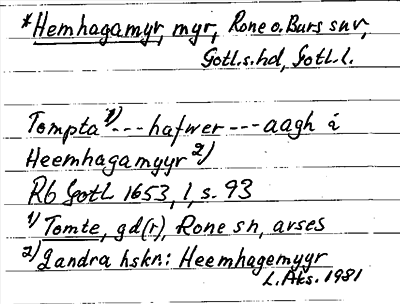 *Hemhagamyr, myr, Rone o. Burs snr,
Gotl.s.hd, Gotl.l.
Tompta 1) --- hafwer --- aagh i
Heemhagamyyr 2)
Rb Gotl 1653, 1, s. 93
1) Tomte, gd(r), Rone sn, avses
2) 2 andra hskr.: Heemhagemyyr
L. Aks. 1981